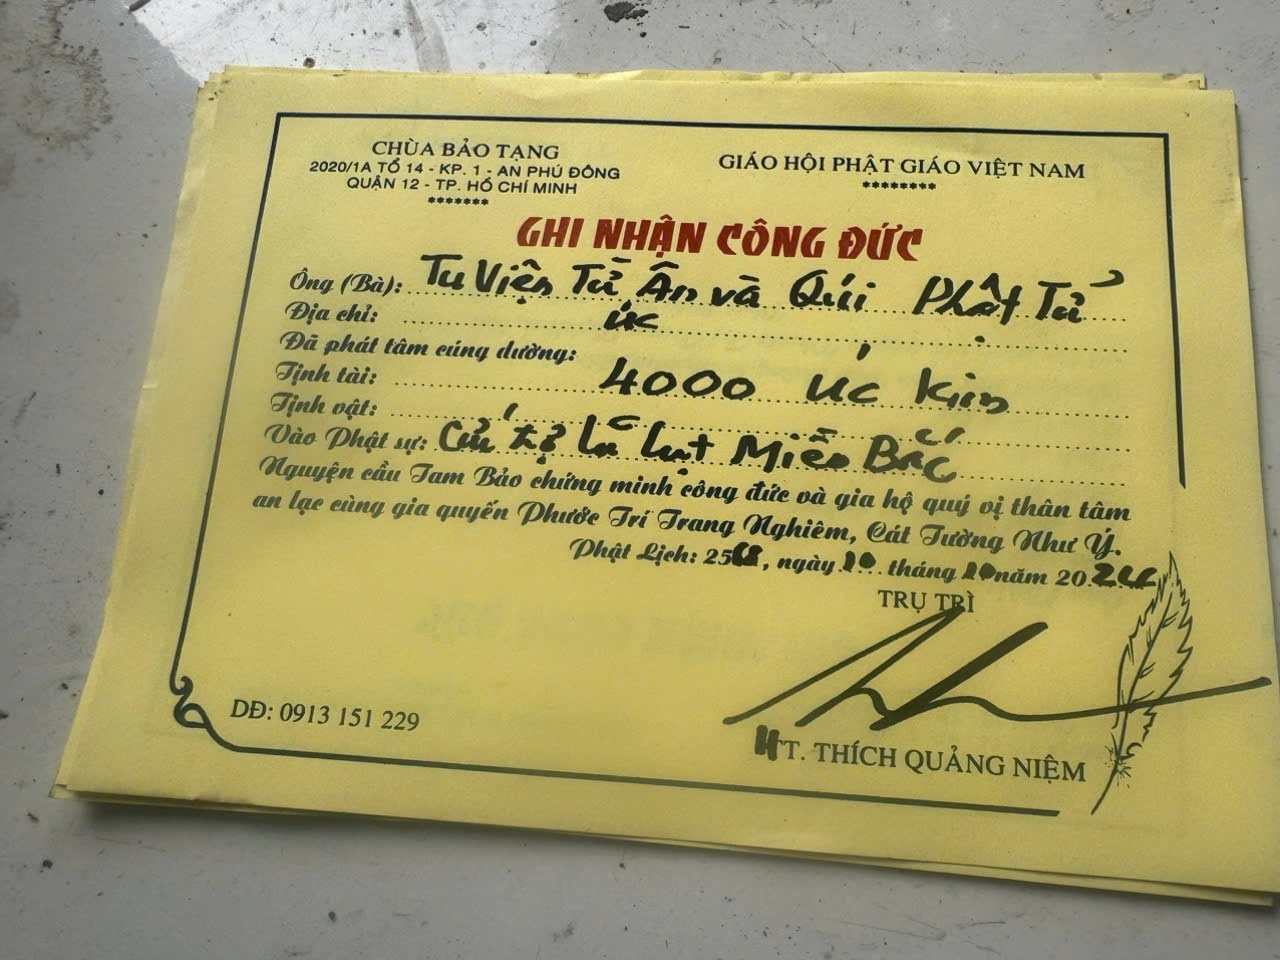 CHÙA BẢO TẠNG
2020/1A TỔ 14 - KP. 1 - AN PHÚ ĐÔNG
QUẬN 12 - TP. HỒ CHÍ MINH
*******
GIÁO HỘI PHẬT GIÁO VIỆT NAM
********
GHI NHẬN CÔNG ĐỨC
Ông (Bà): Tu Viện Từ Ân và Qúi Phật Tử
Địa chỉ: ÚC
Đã phát tâm cúng dường:
Tịnh tài: 4000 Úc Kim
Tịnh vật:
Vào Phật sự: Cứu trợ lũ lụt Miền Bắc
Nguyện cầu Tam Bảo chứng minh công đức và gia hộ quý vị thân tâm
an lạc cùng gia quyến Phước Trí Trang Nghiêm, Cát Tường Như Ý.
Phật Lịch: 25, ngày 10 tháng 10 năm 2024
TRỤ TRÌ
DĐ: 0913 151 229
HT. THÍCH QUẢNG NIỆM